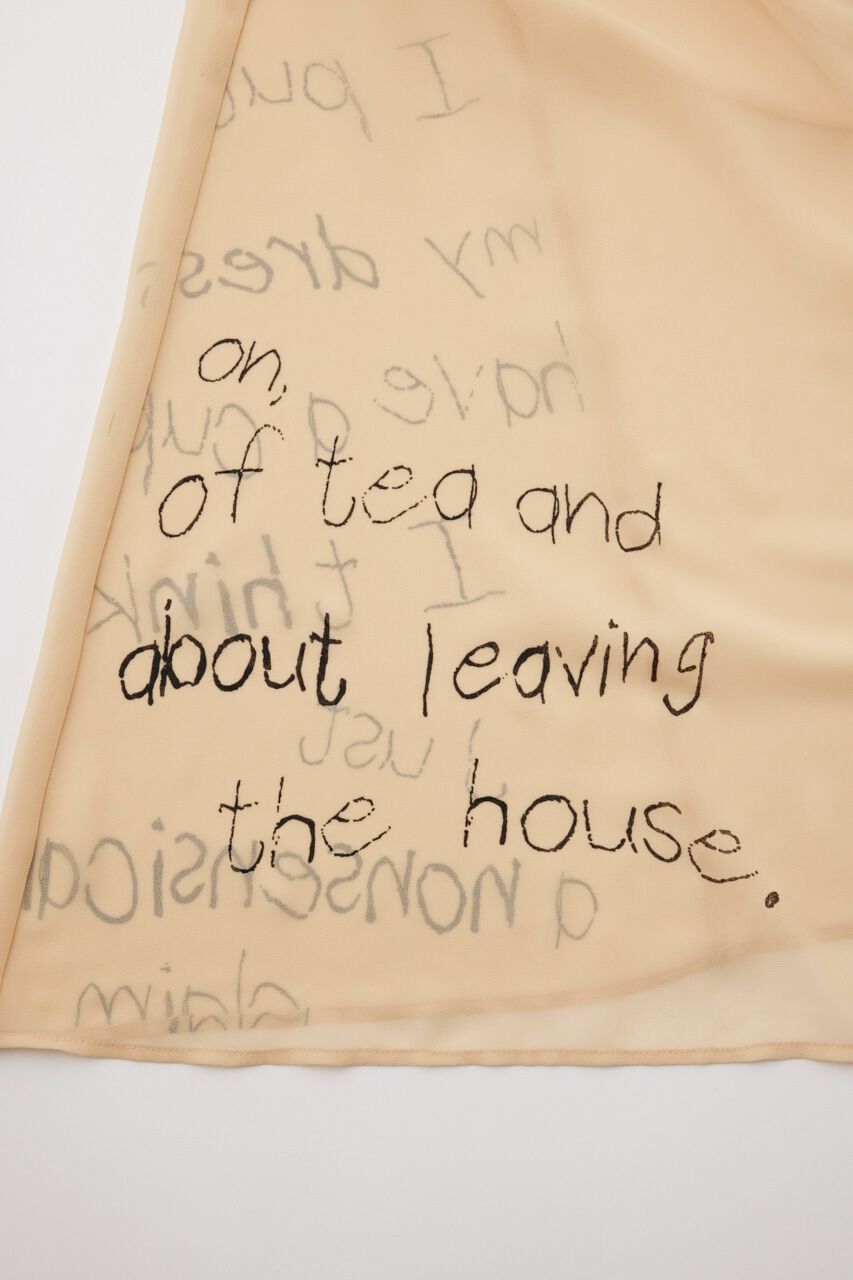 I
my dress
on,
have a cup
of tea and
I think
about leaving
just
the house.
a nonsensical
claim